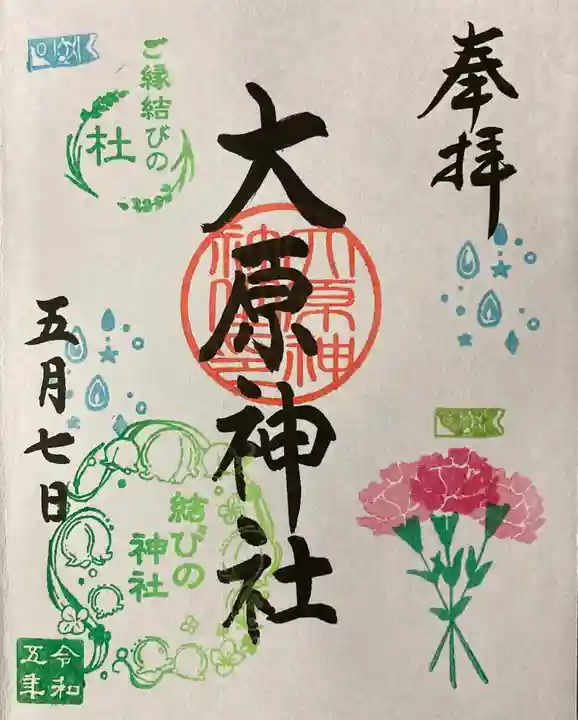 奉拝
大原神社
ご縁結びの
杜
五月七日
結びの
神社
令和
五年